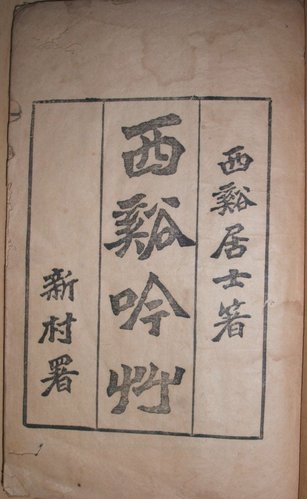 西谿居士著
西谿吟艸
新村署